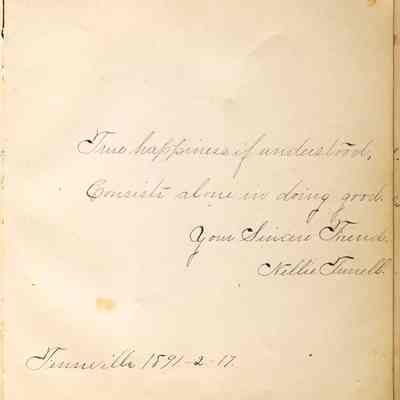 True happiness if understood,
Consists alone in doing good.
Your Sincere Friend.
Nellie Turrell.
1891-2-17.